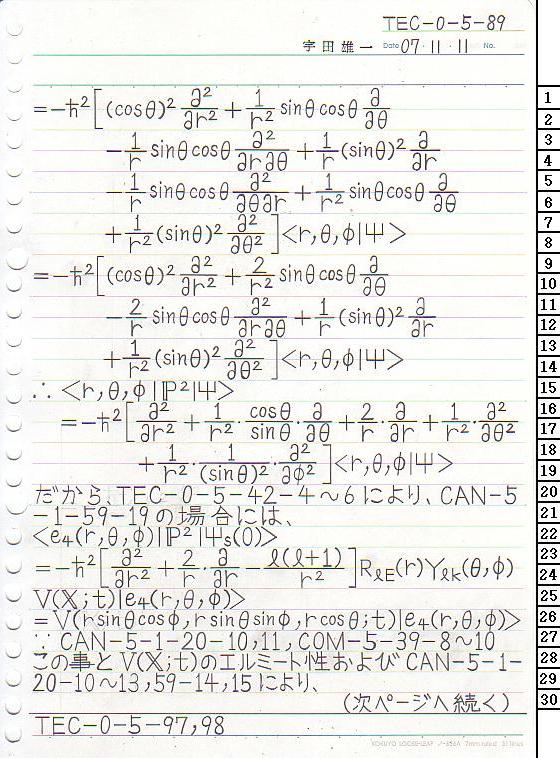 TEC-0-5-89
宇田雄一 Date 07・11・11 No.
=-ħ²[(cosθ)² ∂²/∂r² + 1/r² sinθcosθ ∂/∂θ
-1/r sinθcosθ ∂²/∂r∂θ + 1/r (sinθ)² ∂/∂r
-1/r sinθcosθ ∂²/∂θ∂r + 1/r² sinθcosθ ∂/∂θ
+1/r² (sinθ)² ∂²/∂θ²]<r,θ,φ|Ψ>
=-ħ²[(cosθ)² ∂²/∂r² + 2/r² sinθcosθ ∂/∂θ
-2/r sinθcosθ ∂²/∂r∂θ + 1/r (sinθ)² ∂/∂r
+1/r² (sinθ)² ∂²/∂θ²]<r,θ,φ|Ψ>
∴ <r,θ,φ|ℙ²|Ψ>
=-ħ²[∂²/∂r² + 1/r²・cosθ/sinθ・∂/∂θ + 2/r・∂/∂r + 1/r²・∂²/∂θ²
+1/r²・1/(sinθ)²・∂²/∂φ²]<r,θ,φ|Ψ>
だから、TEC-0-5-42-4~6により、CAN-5
-1-59-19の場合には、
<e₄(r,θ,φ)|ℙ²|Ψs(0)>
=-ħ²[∂²/∂r² + 2/r・∂/∂r - ℓ(ℓ+1)/r²]RℓE(r)Yℓk(θ,φ)
V(𝕏;t)|e₄(r,θ,φ)>
=V(rsinθcosφ,rsinθsinφ,rcosθ;t)|e₄(r,θ,φ)>
∵ CAN-5-1-20-10,11,COM-5-39-8~10
この事とV(𝕏;t)のエルミート性およびCAN-5-1-
20-10~13,59-14,15により、
(次ページへ続く)
TEC-0-5-97,98
KOKUYO LOOSE-LEAF ノ-836A 7mm ruled 31 lines
1
2
3
4
5
6
7
8
9
10
11
12
13
14
15
16
17
18
19
20
21
22
23
24
25
26
27
28
29
30